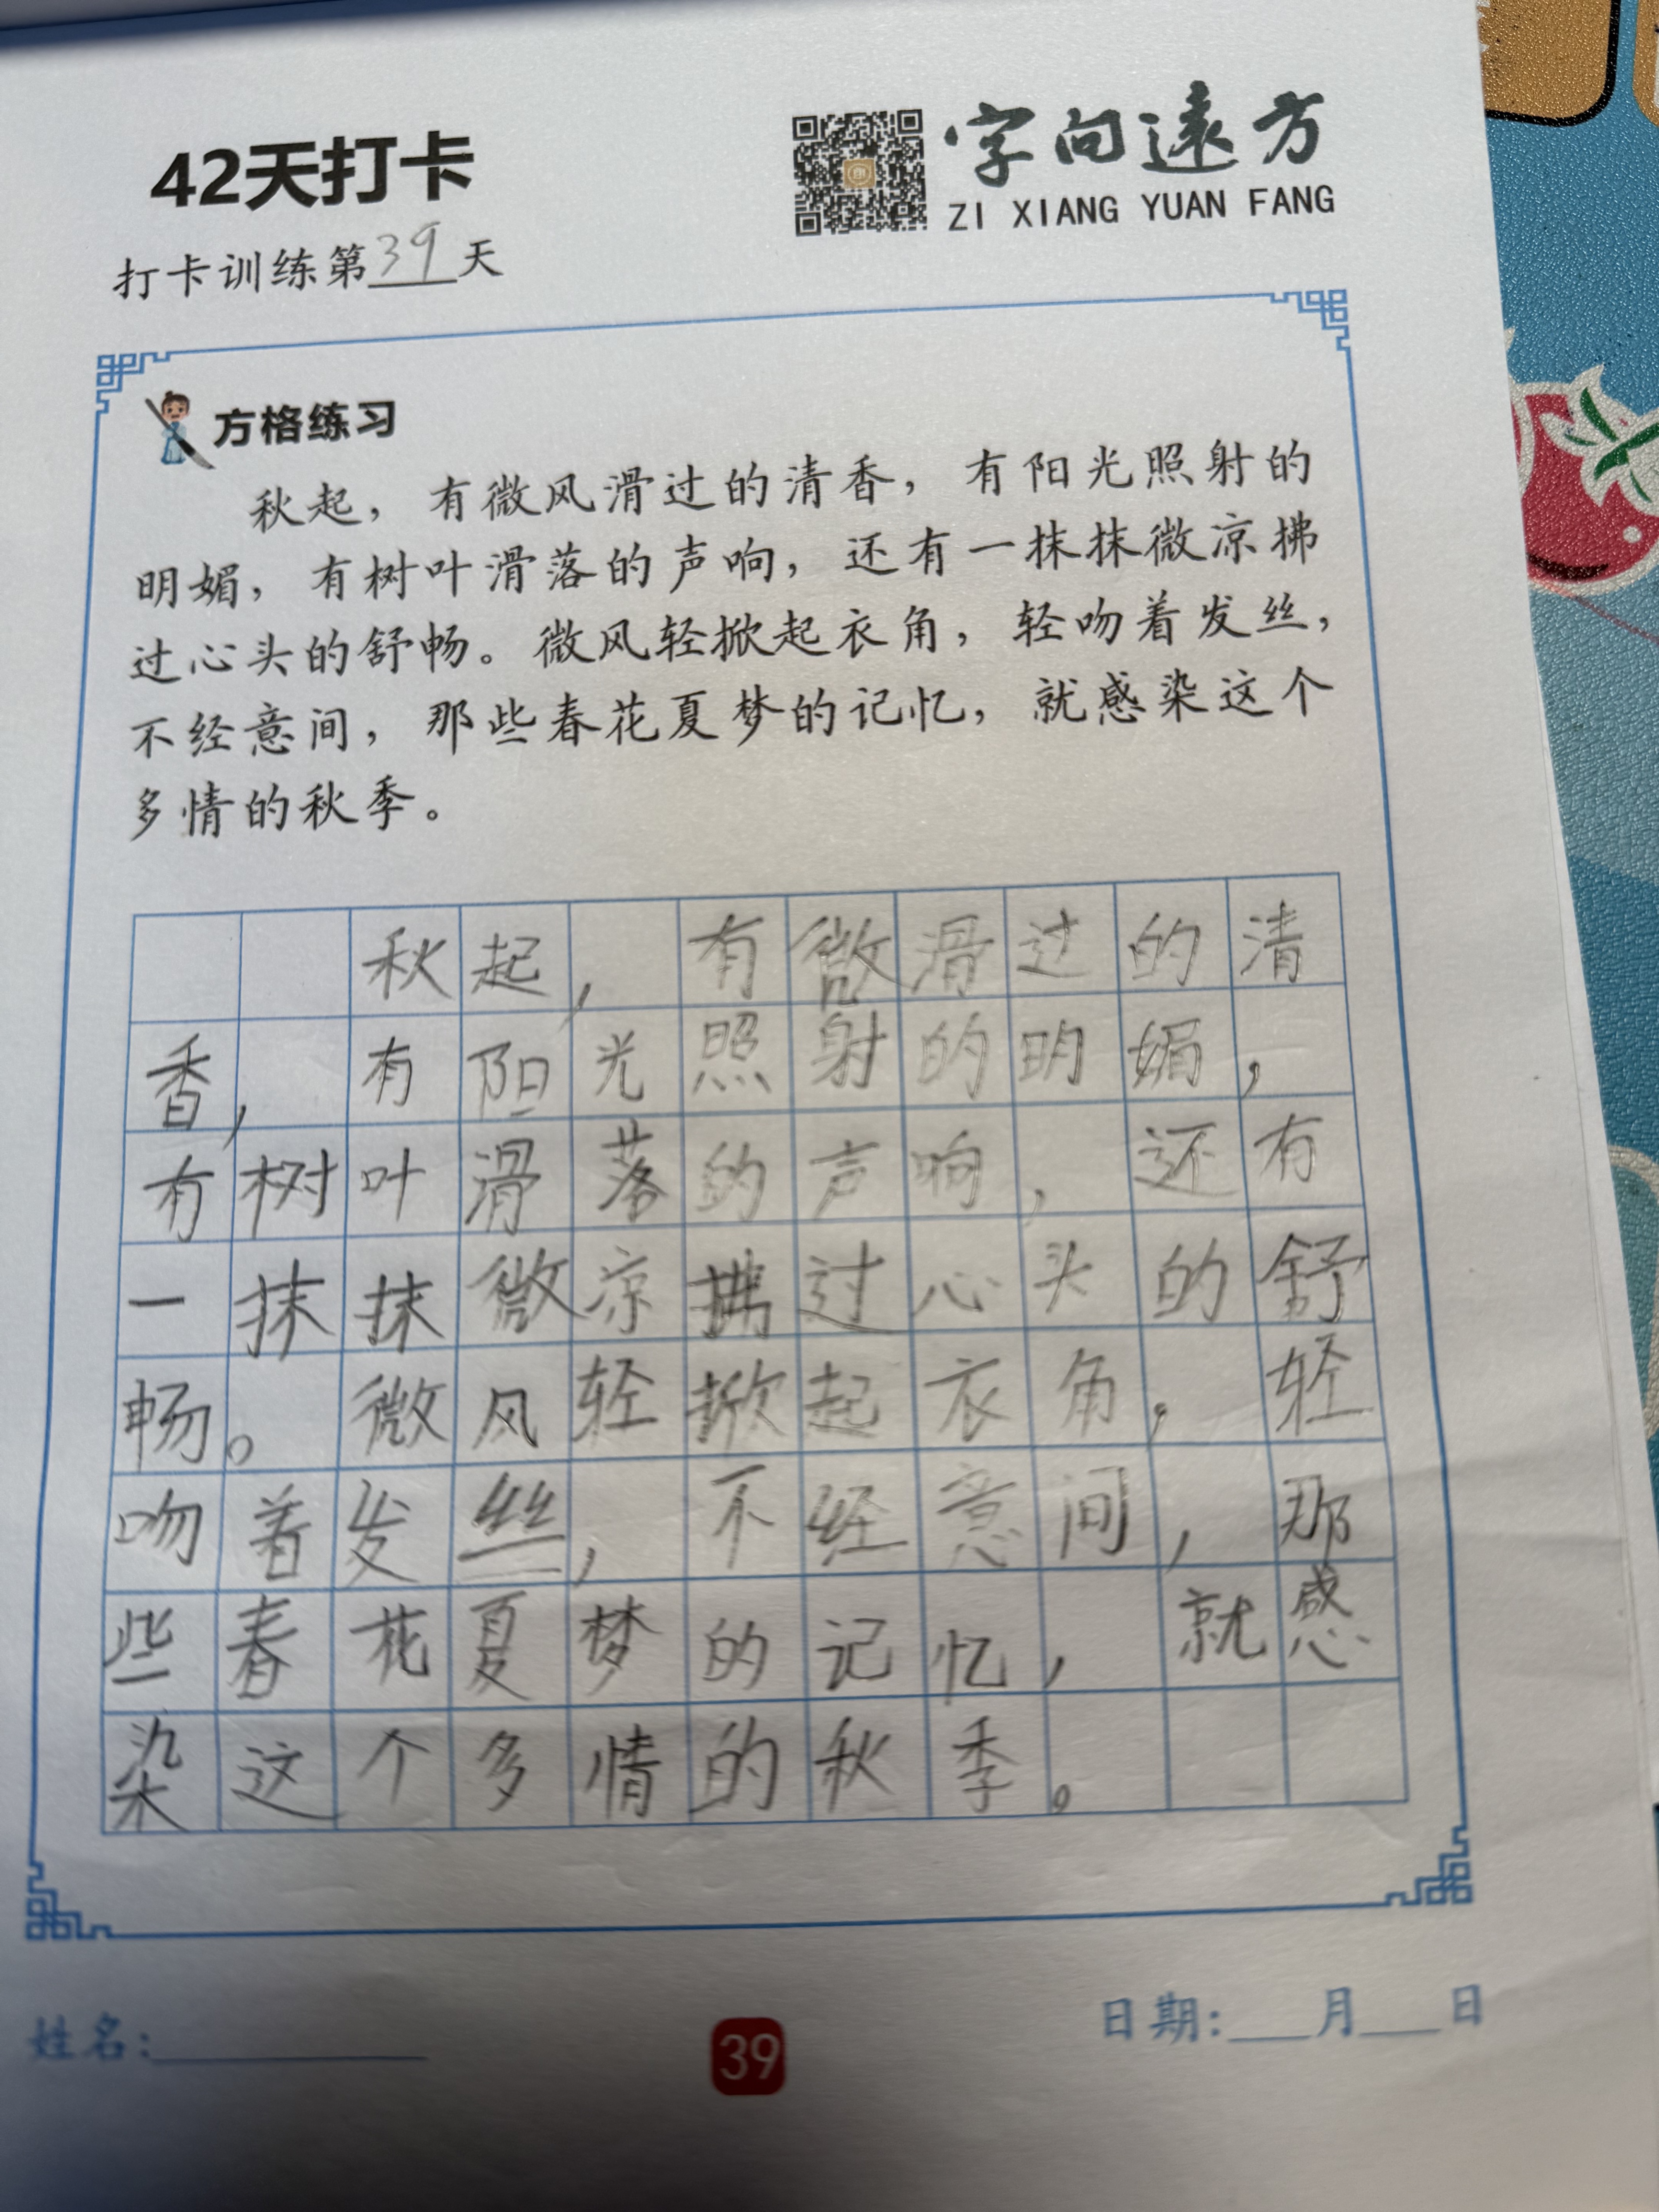 42天打卡
字向遠方
ZI XIANG YUAN FANG
打卡训练第39天
方格练习
秋起，有微风滑过的清香，有阳光照射的
明媚，有树叶滑落的声响，还有一抹抹微凉拂
过心头的舒畅。微风轻掀起衣角，轻吻着发丝，
不经意间，那些春花夏梦的记忆，就感染这个
多情的秋季。
秋起，有微滑过的清
香，有阳光照射的明媚，
有树叶滑落的声响，还有
一抹抹微凉拂过心头的舒
畅。微风轻掀起衣角，轻
吻着发丝，不经意间，那
些春花夏梦的记忆，就感
染这个多情的秋季。
姓名：
39
日期：___月___日